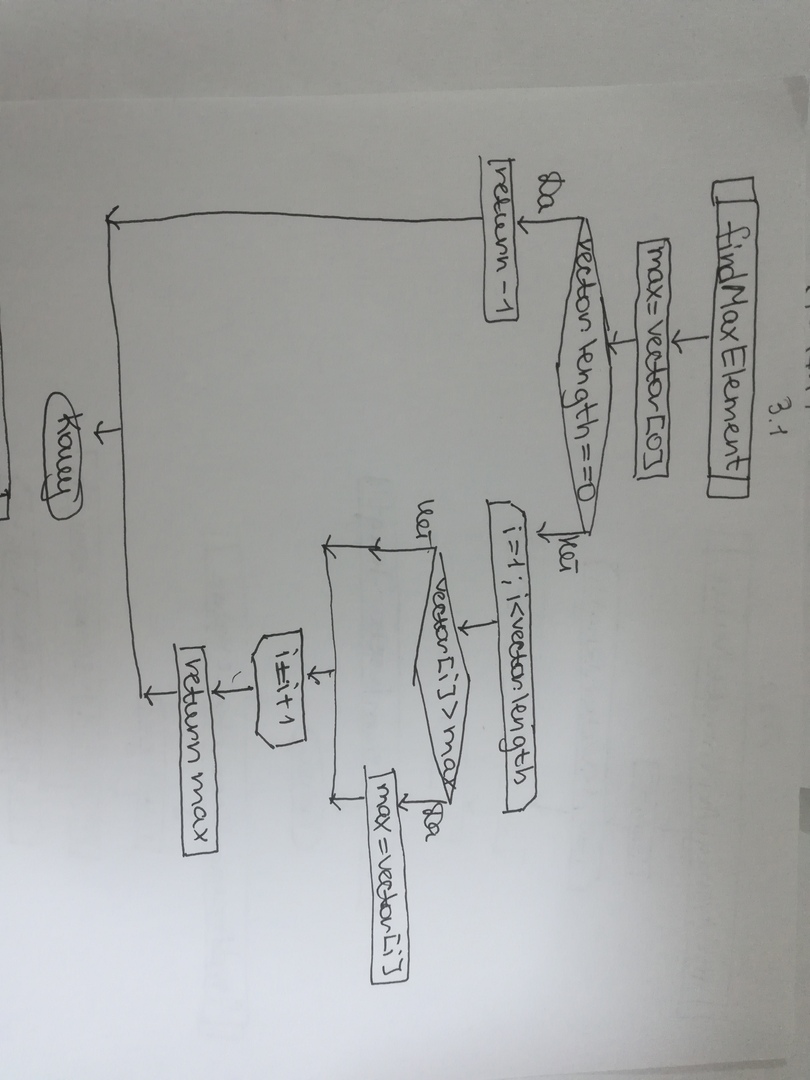 3.1
findMaxElement
max=vector[0]
vector.length==0
Да
Нет
return -1
i=1; i<vector.length
vector[i]>max
Нет
Да
max=vector[i]
i=i+1
return max
Конец